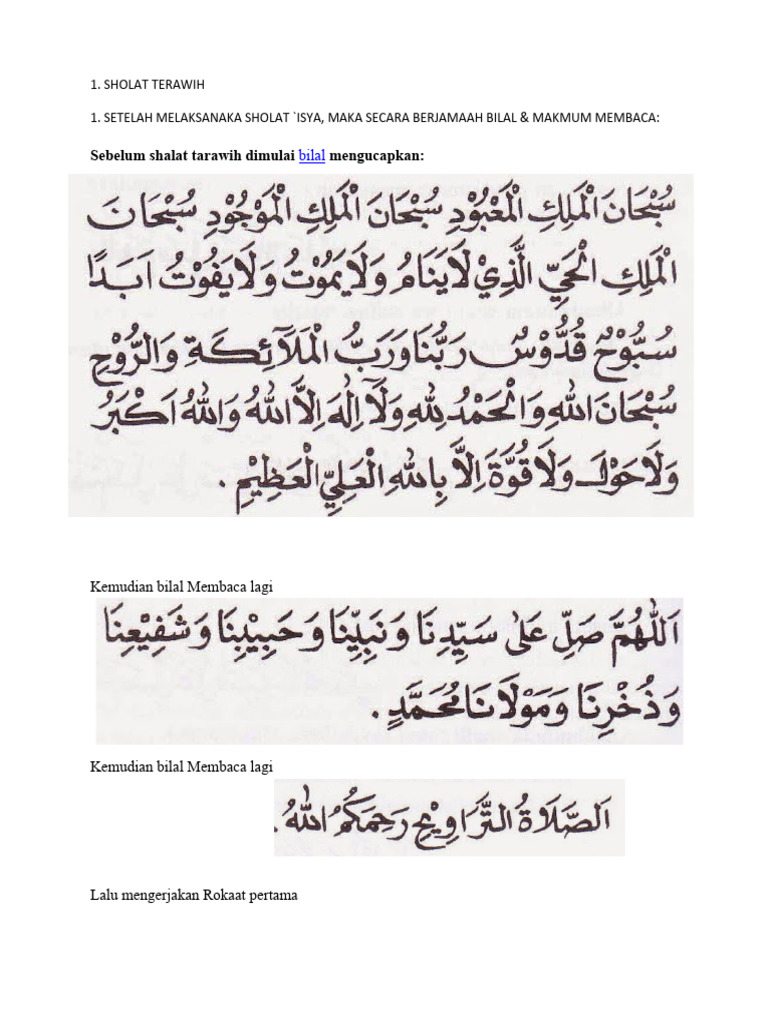 1. SHOLAT TERAWIH
1. SETELAH MELAKSANAKA SHOLAT `ISYA, MAKA SECARA BERJAMAAH BILAL & MAKMUM MEMBACA:
Sebelum shalat tarawih dimulai bilal mengucapkan:
سُبْحَانَ الْمَلِكِ الْمَعْبُوْدِ سُبْحَانَ الْمَلِكِ الْمَوْجُوْدِ سُبْحَانَ
الْمَلِكِ الْحَيِّ الَّذِيْ لَايَنَامُ وَلَا يَمُوْتُ وَلَا يَفُوْتُ اَبَدًا
سُبُّوْحٌ قُدُّوْسٌ رَبُّنَا وَرَبُّ الْمَلَآئِكَةِ وَالرُّوْحِ
سُبْحَانَ اللهِ وَالْحَمْدُ لِلهِ وَلَآ اِلٰهَ اِلَّا اللهُ وَاللهُ اَكْبَرُ
وَلَا حَوْلَ وَلَا قُوَّةَ اِلَّا بِاللهِ الْعَلِيِّ الْعَظِيْمِ.
Kemudian bilal Membaca lagi
اَللّٰهُمَّ صَلِّ عَلٰى سَيِّدِنَا وَنَبِيِّنَا وَحَبِيْبِنَا وَشَفِيْعِنَا
وَذُخْرِنَا وَمَوْلَانَا مُحَمَّدٍ.
Kemudian bilal Membaca lagi
اَلصَّلَاةُ التَّرَاوِيْحِ رَحِمَكُمُ اللهُ.
Lalu mengerjakan Rokaat pertama